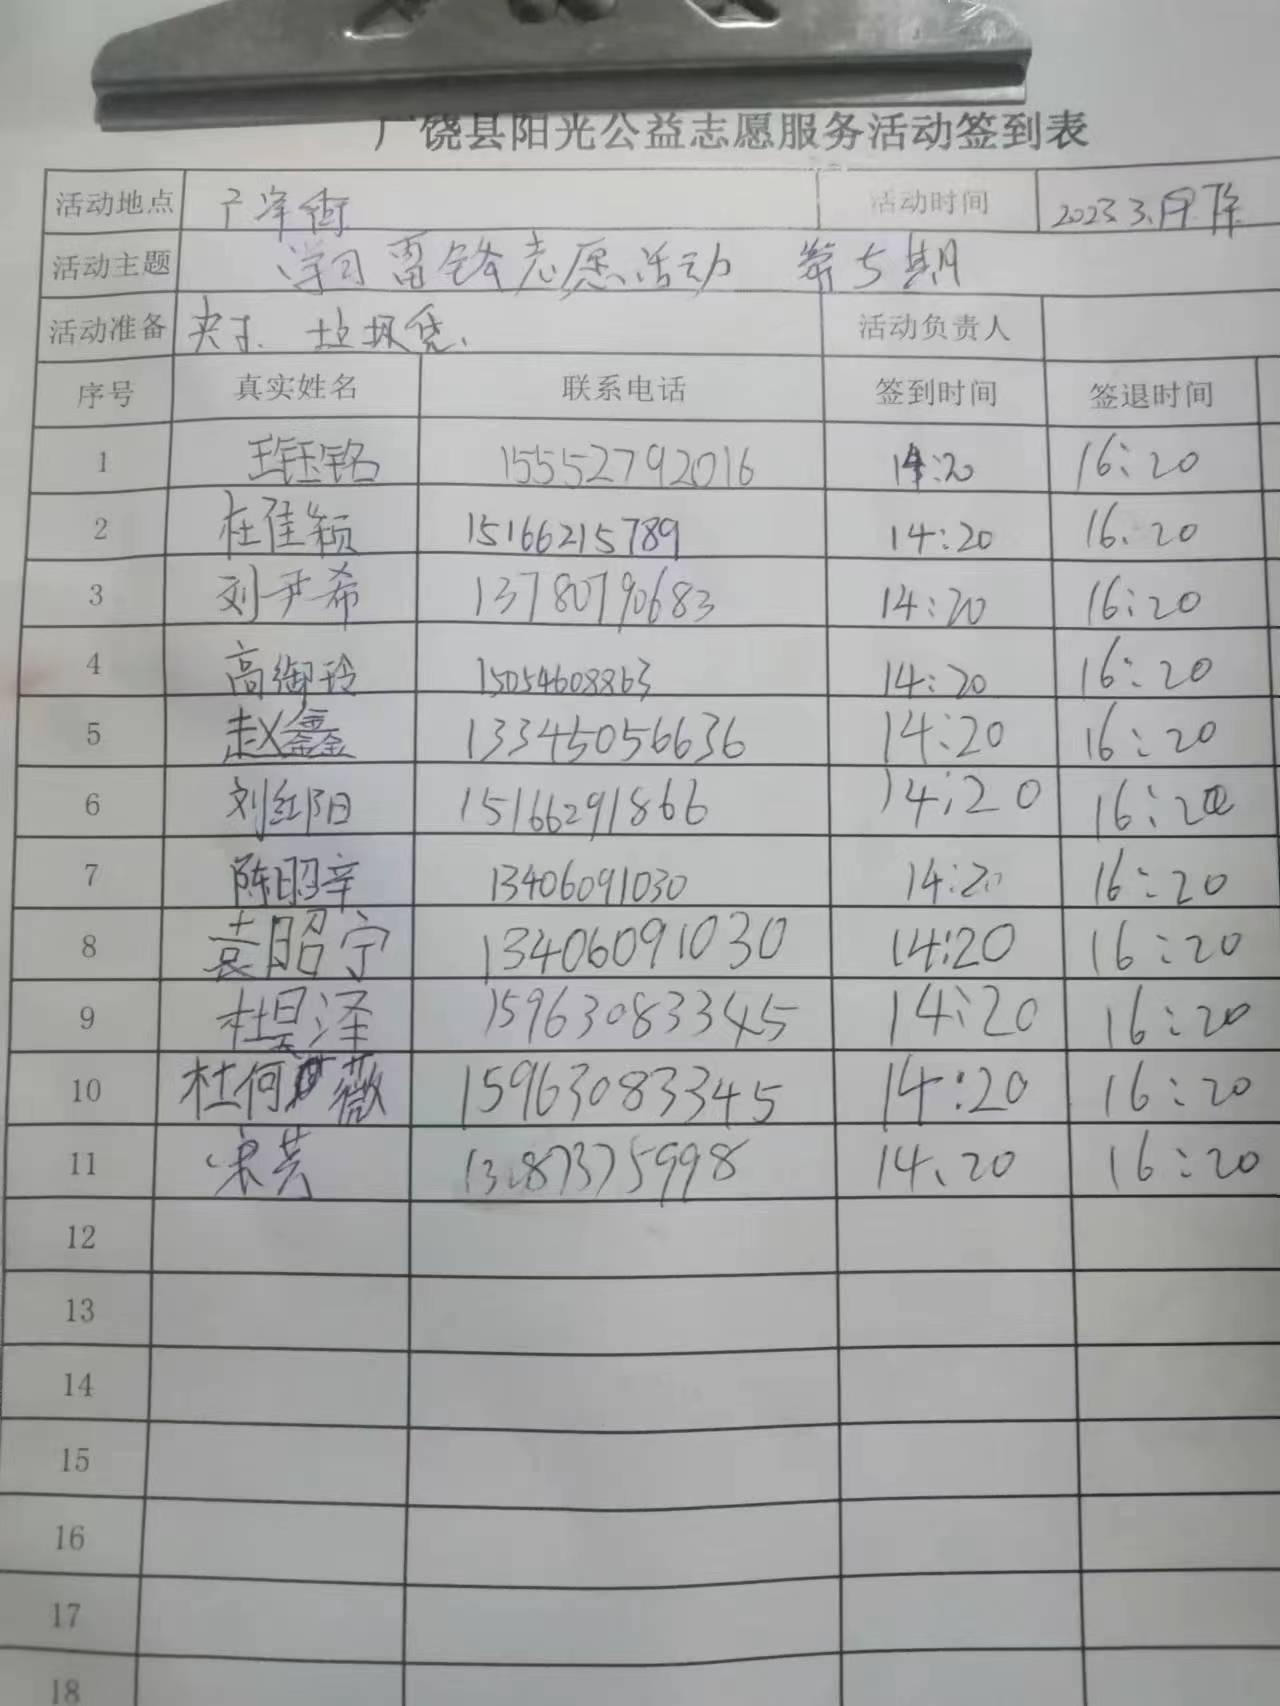 广饶县阳光公益志愿服务活动签到表
活动地点 活动时间 2023.3.
活动主题 学习雷锋志愿活动 第5期
活动准备 夹子、垃圾袋、 活动负责人
序号 真实姓名 联系电话 签到时间 签退时间
1 15552792016 14:20 16:20
2 杜佳颖 15166215789 14:20 16:20
3 刘尹希 13780790683 14:20 16:20
4 高御玲 15054608863 14:20 16:20
5 赵鑫 13345056636 14:20 16:20
6 刘红阳 15166291866 14:20 16:20
7 陈昭辛 13406091030 14:20 16:20
8 袁昭宁 13406091030 14:20 16:20
9 杜昊泽 15963083345 14:20 16:20
10 杜何薇 15963083345 14:20 16:20
11 宋芸 14、20 16:20
12
13
14
15
16
17
18